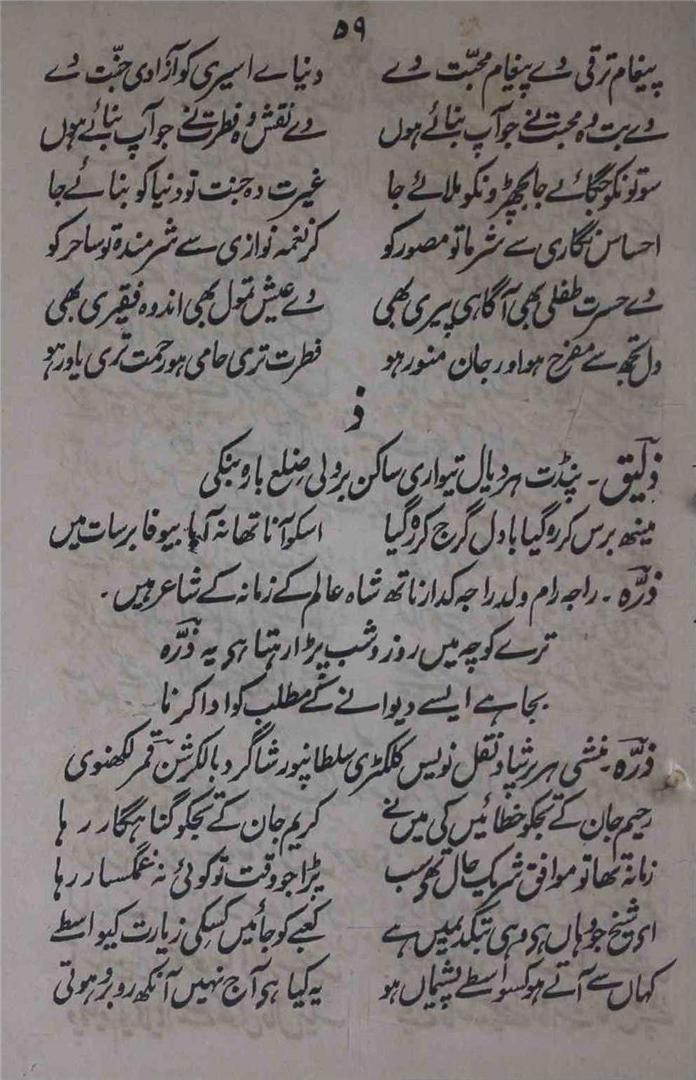 ۵۹
پیغام ترقی دے پیغام محبّت دے دنیاے اسیری کو آزادی جنّت دے
دے بت وہ محبت نے جو آپ بنائے ہوں دے نقش وہ فطرت نے جو آپ بنائے ہوں
سوتونکو جگائے جا بچھڑونکو ملائے جا غیرت دہ جنت تو دنیا کو بنائے جا
احساس نگاری سے شرما تو مصور کو کر نغمہ نوازی سے شرمندہ تو ساحر کو
دے حسرت طفلی بھی آگاہی پیری بھی دے عیش تمول بھی اندوہ فقیری بھی
دل تجھ سے مفرح ہو اور جان منور ہو فطرت تری حامی ہو رحمت تری یاور ہو
ذ
ذلیق۔ پنڈت ہردیال تیواری ساکن برولی ضلع بارہ بنکی
مینھ برس کر رہ گیا بادل گرج کر رہ گیا اسکو آنا تھا نہ آیا بیوفا برسات میں
ذرّہ۔ راجہ رام ولد راجہ کدارناتھ شاہ عالم کے زمانہ کے شاعر ہیں۔
ترے کوچہ میں روز و شب پڑا رہتا ہی یہ ذرّہ
بجا ہے ایسے دیوانے کے مطلب کو ادا کرنا
ذرّہ۔ منشی ہرپرشاد نقل نویس کلکٹری سلطانپور شاگرد بالکرشن قمر لکھنوی
رحیم جان کے تجکو خطائیں کی میں نے کریم جان کے تجکو گناہگار رہا
زمانہ تھا تو موافق شریک حال تھی سب پڑا جو وقت تو کوئی نہ غمگسار رہا
ای شیخ جو وہاں ہی وہی بتکدیمیں ہے کعبے کو جائیں کسکی زیارت کیواسطے
کہاں سے آتے ہو کسواسطے پشیماں ہو یہ کیا ہی آج نہیں آنکھ روبرو ہوتی